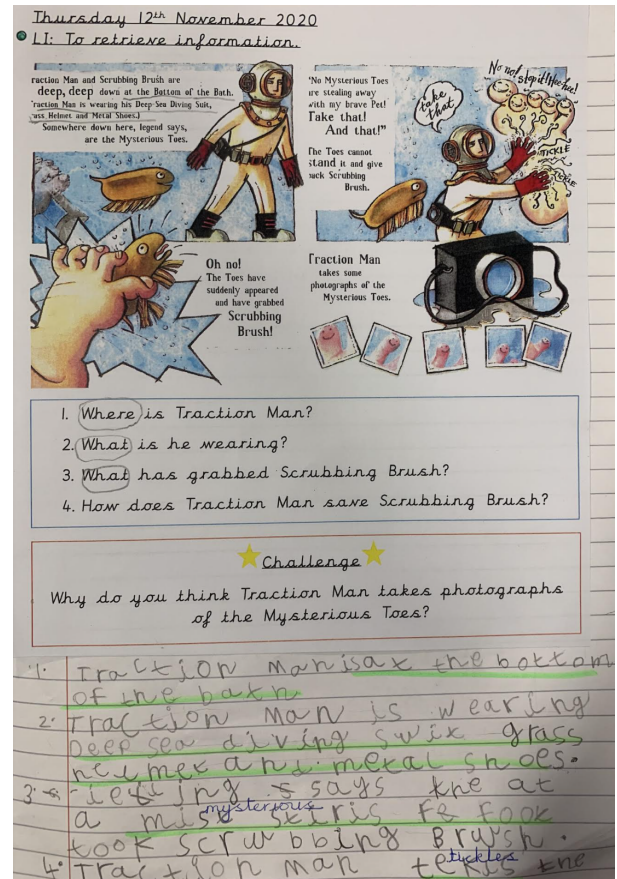 Thursday 12th November 2020
LI: To retrieve information.
raction Man and Scrubbing Brush are
deep, deep down at the Bottom of the Bath.
raction Man is wearing his Deep-Sea Diving Suit,
ass Helmet and Metal Shoes.)
Somewhere down here, legend says,
are the Mysterious Toes.
Oh no!
The Toes have
suddenly appeared
and have grabbed
Scrubbing
Brush!
"No Mysterious Toes
are stealing away
with my brave Pet!
Take that!
And that!"
The Toes cannot
stand it and give
back Scrubbing
Brush.
take
that
No no! stop it! Hee hee!
TICKLE
Traction Man
takes some
photographs of the
Mysterious Toes.
1. Where is Traction Man?
2. What is he wearing?
3. What has grabbed Scrubbing Brush?
4. How does Traction Man save Scrubbing Brush?
Challenge
Why do you think Traction Man takes photographs
of the Mysterious Toes?
1. Traction Man is at the bottom
of the bath
2. Traction Man is wearing
Deep sea diving swit grass
helmet and metal shoes.
3. says the at
mysterious
a
took scrubbing Brush.
tickles
4. Traction man the